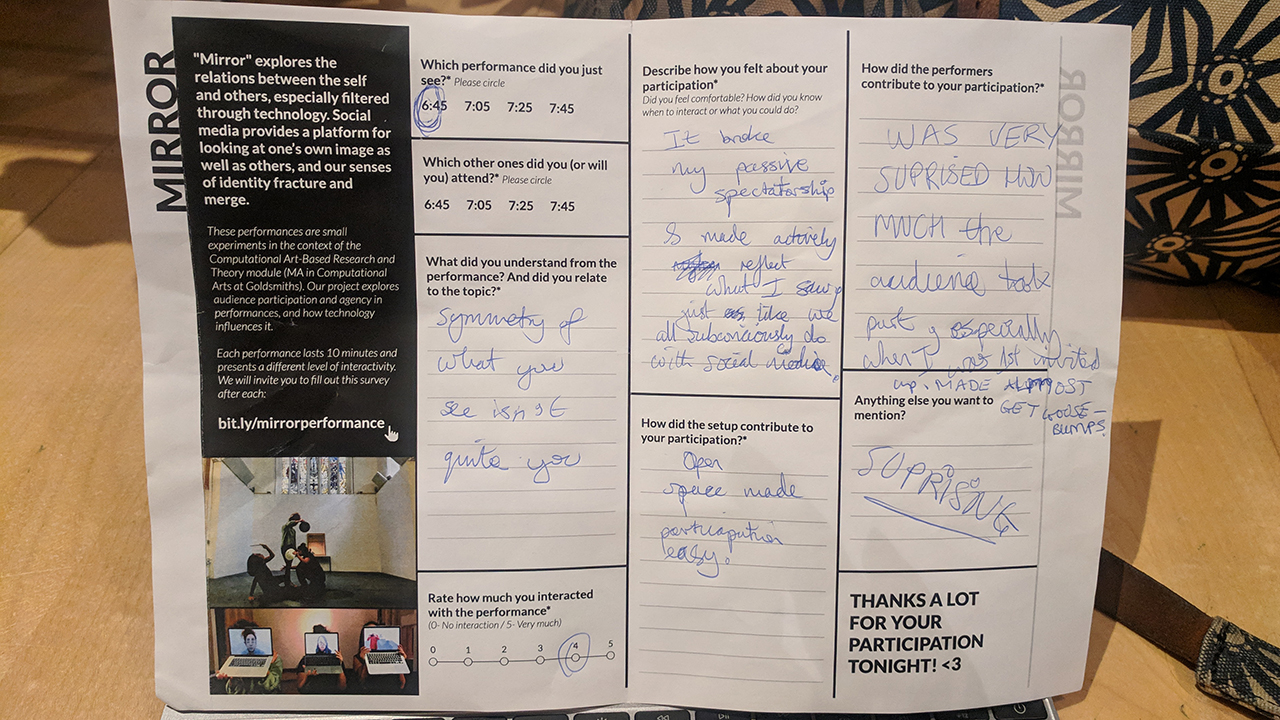 MIRROR
"Mirror" explores the
relations between the self
and others, especially filtered
through technology. Social
media provides a platform for
looking at one's own image as
well as others, and our senses
of identity fracture and
merge.
These performances are small
experiments in the context of the
Computational Art-Based Research and
Theory module (MA in Computational
Arts at Goldsmiths). Our project explores
audience participation and agency in
performances, and how technology
influences it.
Each performance lasts 10 minutes and
presents a different level of interactivity.
We will invite you to fill out this survey
after each:
bit.ly/mirrorperformance
Which performance did you just
see?* Please circle
6:45 7:05 7:25 7:45
Which other ones did you (or will
you) attend?* Please circle
6:45 7:05 7:25 7:45
What did you understand from the
performance? And did you relate
to the topic?*
symmetry of
what you
see isn't
quite you
Rate how much you interacted
with the performance*
(0- No interaction / 5- Very much)
0 1 2 3 4 5
Describe how you felt about your
participation*
Did you feel comfortable? How did you know
when to interact or what you could do?
It broke
my passive
spectatorship
& made actively
reflect
what I saw,
just like we
all subconciously do
with social media.
How did the setup contribute to
your participation?*
Open
space made
participation
easy.
How did the performers
contribute to your participation?*
WAS VERY
SUPRISED HOW
MUCH the
audience took
part, especially
when I was 1st invited
up. MADE ALMOST
GET GOOSE-
BUMPS.
Anything else you want to
mention?
SUPRISING
THANKS A LOT
FOR YOUR
PARTICIPATION
TONIGHT! <3
MIRROR